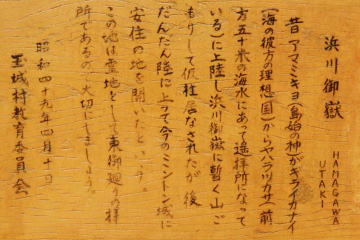 浜川御嶽
HAMAGAWA
UTAKI
昔アマミキヨ(島始の神がギライカナイ
(海の彼方の理想国)からヤハラヅカサ(前
方五十米の海水にあって遙拝所になって
いる)に上陸し浜川御嶽に暫く山ご
もりして仮住居なされたが後
だんだん陸に上って今のミントン城に
安住の地を開いたという。
この地は霊地として東御廻りの拝
所であるので大切にしましょう。
昭和四十九年四月十日
玉城村教育委員会